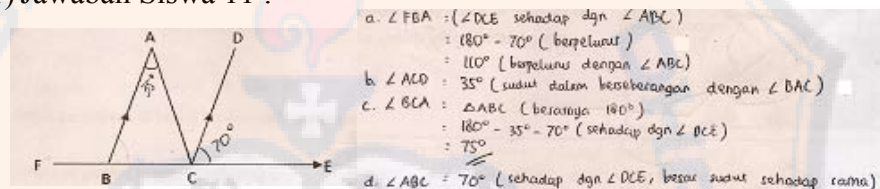 ) Jawaban Siswa 11 :
A
D
35°
70°
F
B
C
E
a. ∠FBA : (∠DCE sehadap dgn ∠ABC)
: 180° - 70° (berpelurus)
: 110° (berpelurus dengan ∠ABC)
b. ∠ACD : 35° (sudut dalam berseberangan dengan ∠BAC)
c. ∠BCA : △ABC (besarnya 180°)
: 180° - 35° - 70° (sehadap dgn ∠DCE)
: 75°
d. ∠ABC = 70° (sehadap dgn ∠DCE, besar sudut sehadap sama)